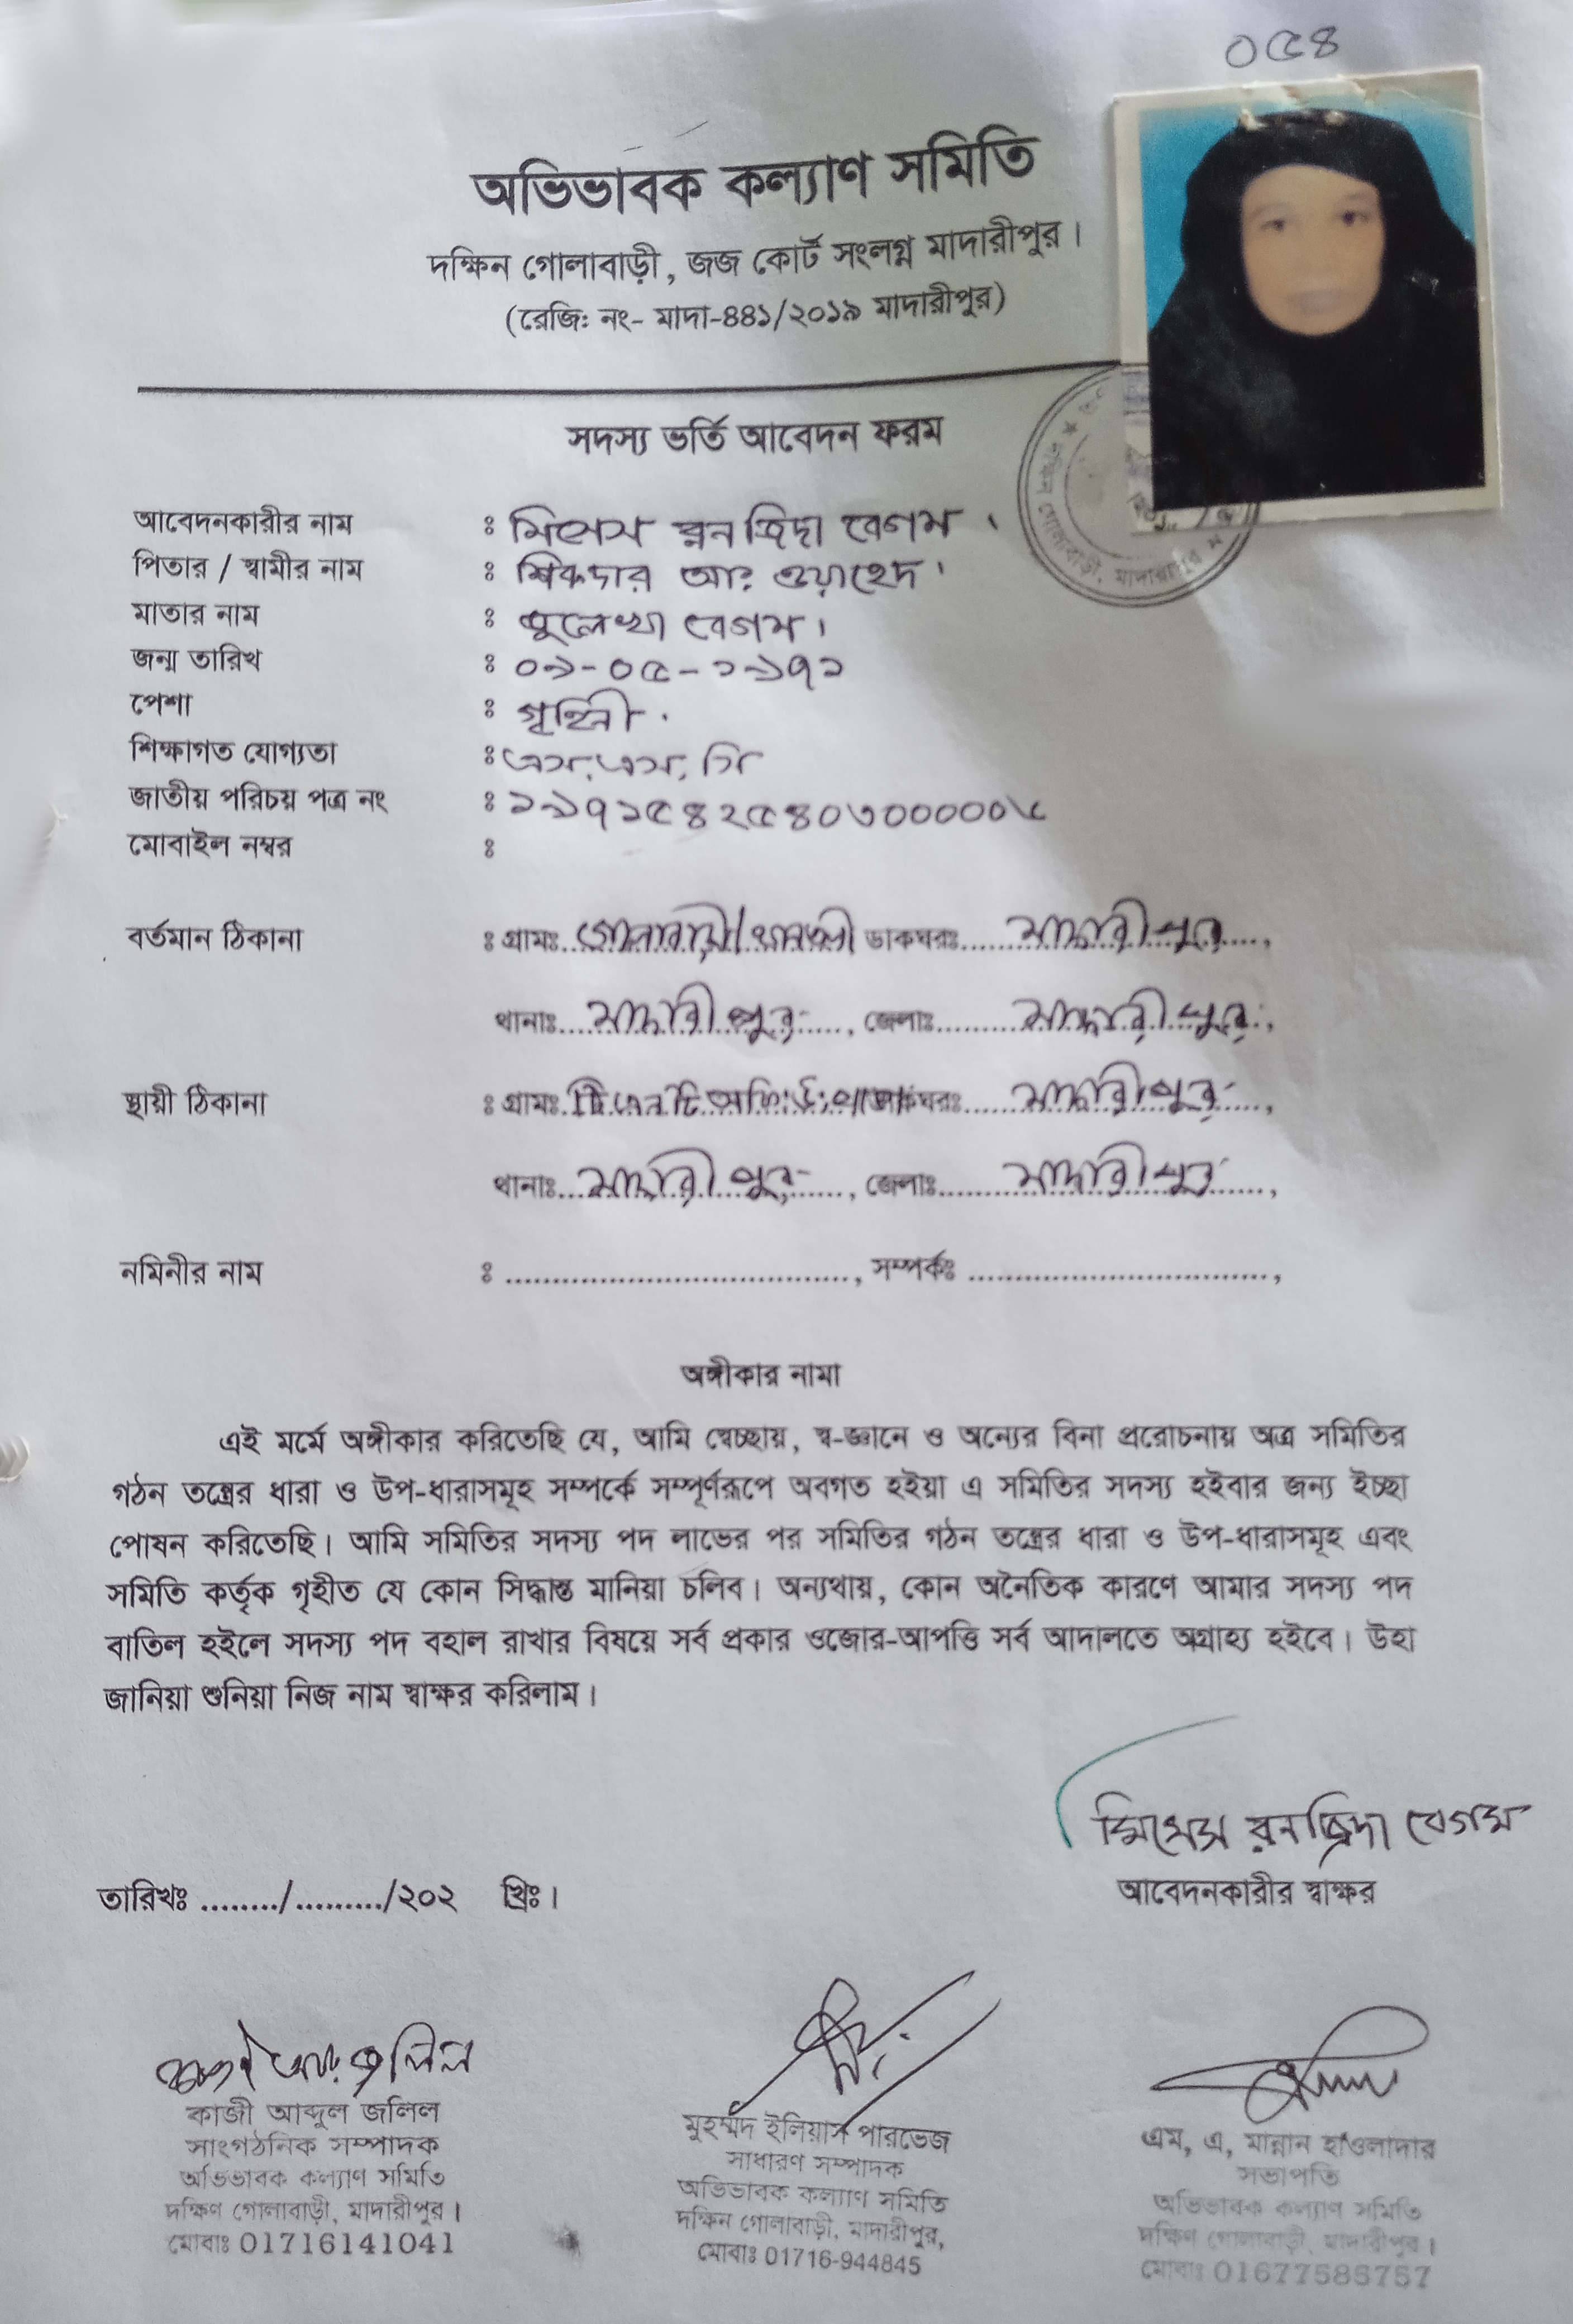 ০৫৪
অভিভাবক কল্যাণ সমিতি
দক্ষিন গোলাবাড়ী, জজ কোর্ট সংলগ্ন মাদারীপুর।
(রেজি: নং- মাদা-৪৪১/২০১৯ মাদারীপুর)
সদস্য ভর্তি আবেদন ফরম
আবেদনকারীর নাম ঃ মিসেস রনজিদা বেগম।
পিতার / স্বামীর নাম ঃ শিকদার আঃ ওয়াহেদ।
মাতার নাম ঃ জুলেখা বেগম।
জন্ম তারিখ ঃ ০৯-০৫-১৯৭১
পেশা ঃ গৃহিনী।
শিক্ষাগত যোগ্যতা ঃ এস.এস.সি
জাতীয় পরিচয় পত্র নং ঃ
মোবাইল নম্বর ঃ
বর্তমান ঠিকানা ঃ গ্রামঃ গোলাবাড়ী ডাকঘরঃ মাদারীপুর,
থানাঃ মাদারীপুর, জেলাঃ মাদারীপুর,
স্থায়ী ঠিকানা ঃ গ্রামঃ ডাকঘরঃ মাদারীপুর,
থানাঃ মাদারীপুর, জেলাঃ মাদারীপুর,
নমিনীর নাম ঃ ...................................., সম্পর্কঃ ................................,
অঙ্গীকার নামা
এই মর্মে অঙ্গীকার করিতেছি যে, আমি স্বেচ্ছায়, স্ব-জ্ঞানে ও অন্যের বিনা প্ররোচনায় অত্র সমিতির
গঠন তন্ত্রের ধারা ও উপ-ধারাসমূহ সম্পর্কে সম্পূর্ণরূপে অবগত হইয়া এ সমিতির সদস্য হইবার জন্য ইচ্ছা
পোষন করিতেছি। আমি সমিতির সদস্য পদ লাভের পর সমিতির গঠন তন্ত্রের ধারা ও উপ-ধারাসমূহ এবং
সমিতি কর্তৃক গৃহীত যে কোন সিদ্ধান্ত মানিয়া চলিব। অন্যথায়, কোন অনৈতিক কারণে আমার সদস্য পদ
বাতিল হইলে সদস্য পদ বহাল রাখার বিষয়ে সর্ব প্রকার ওজোর-আপত্তি সর্ব আদালতে অগ্রাহ্য হইবে। উহা
জানিয়া শুনিয়া নিজ নাম স্বাক্ষর করিলাম।
মিসেস রনজিদা বেগম
তারিখঃ ......../........./২০২ খ্রিঃ। আবেদনকারীর স্বাক্ষর
কাজী আব্দুল জলিল
সাংগঠনিক সম্পাদক
অভিভাবক কল্যাণ সমিতি
দক্ষিণ গোলাবাড়ী, মাদারীপুর।
মোবাঃ 01716141041
মুহম্মদ ইলিয়াস পারভেজ
সাধারণ সম্পাদক
অভিভাবক কল্যাণ সমিতি
দক্ষিন গোলাবাড়ী, মাদারীপুর,
মোবাঃ 01716-944845
এম, এ, মান্নান হাওলাদার
সভাপতি
অভিভাবক কল্যাণ সমিতি
দক্ষিণ গোলাবাড়ী, মাদারীপুর।
মোবাঃ 01677585757